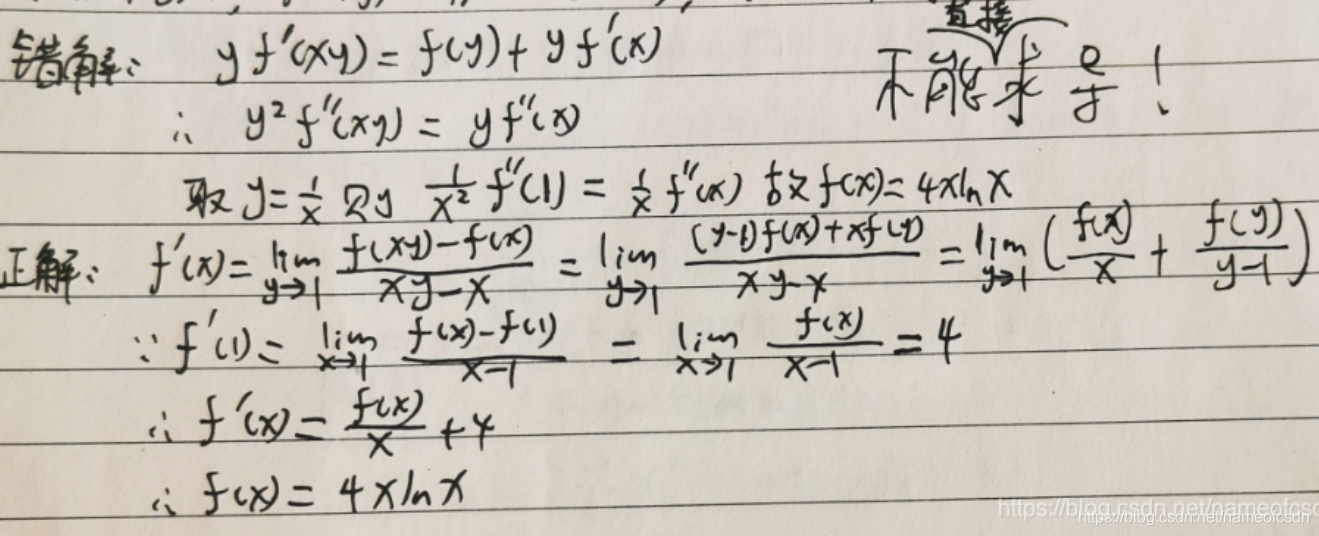 直接
错解: yf'(xy) = f(y) + yf'(x) 不能求导!
∴ y²f''(xy) = yf''(x)
取 y=1/x 则 1/x² f''(1) = 1/x f''(x) 故 f(x)=4xlnx
正解: f'(x) = lim y→1 (f(xy)-f(x))/(xy-x) = lim y→1 ((y-1)f(x)+xf(y))/(xy-x) = lim y→1 (f(x)/x + f(y)/(y-1))
∵ f'(1) = lim x→1 (f(x)-f(1))/(x-1) = lim x→1 f(x)/(x-1) = 4
∴ f'(x) = f(x)/x + 4
∴ f(x) = 4xlnx
https://blog.csdn.net/nameofcsdn